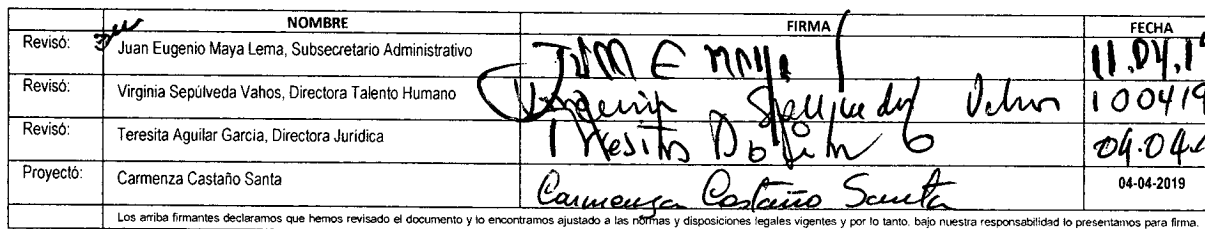 NOMBRE FIRMA FECHA
Revisó: Juan Eugenio Maya Lema, Subsecretario Administrativo 11.04.1
Revisó: Virginia Sepúlveda Vahos, Directora Talento Humano 100419
Revisó: Teresita Aguilar García, Directora Jurídica 04.04.
Proyectó: Carmenza Castaño Santa Carmenza Castaño Santa 04-04-2019
Los arriba firmantes declaramos que hemos revisado el documento y lo encontramos ajustado a las normas y disposiciones legales vigentes y por lo tanto, bajo nuestra responsabilidad lo presentamos para firma.